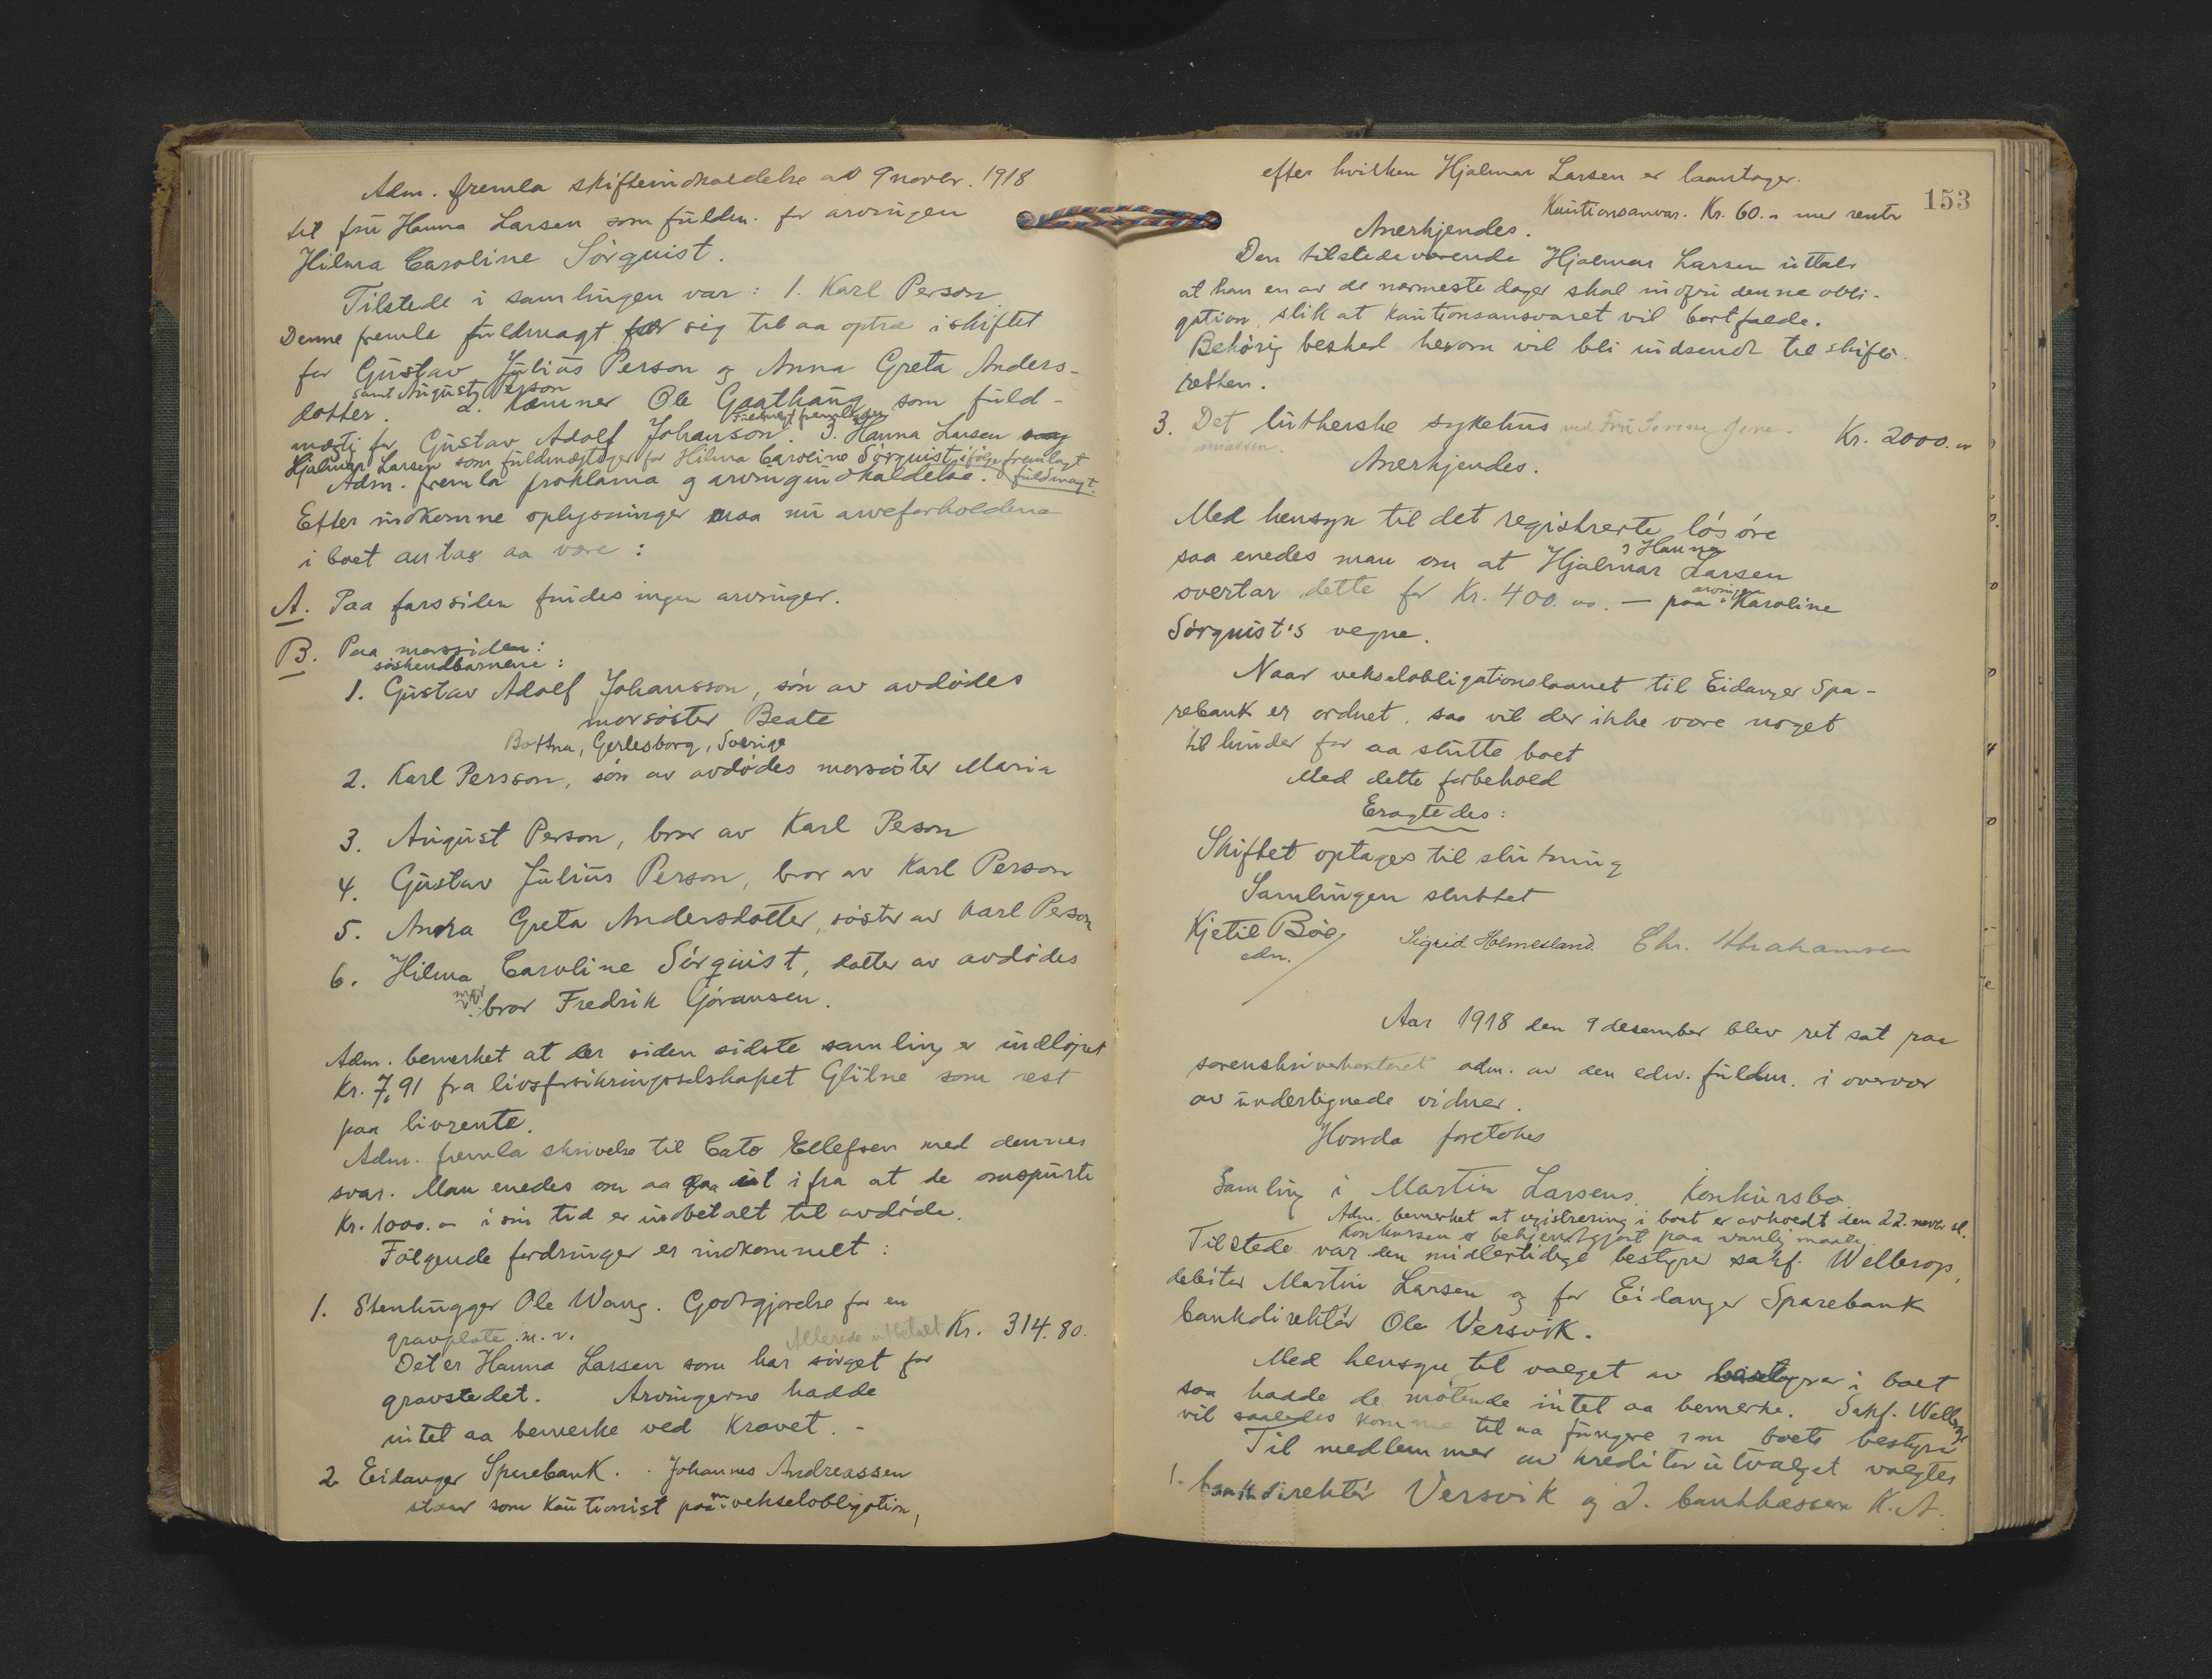 Adm. fremla skifteindkaldelse av 9 novbr. 1918
til fru Hanna Larsen som fuldm. for arvingen
Hilma Caroline Sörquist.
Tilstede i samlingen var: 1. Karl Person
Denne fremla fuldmagt for sig til aa optræ i skiftet
for Gustav Julius Person og Anna Greta Anders-
samt August Person
datter. 2. Kæmner Ole Gaathaug som fuld-
Fuldmagt fremlagdes
mægtig for Gustav Adolf Johanson. 3. Hanna Larsen og
Hjalmar Larsen som fuldmægtiger for Hilma Caroline Sörquist ifölge fremlagt
fuldmagt.
Adm. fremla proklama og arvingindkaldelse.
Efter indkomne oplysninger maa nu arveforholdene
i boet antas aa være:
A. Paa farssiden findes ingen arvinger.
B. Paa morssiden:
söskendbarnene:
1. Gustav Adolf Johansson, sön av avdödes
morsöster Beate
Bottna, Gerlesborg, Sverige
2. Karl Persson, sön av avdödes morsöster Maria
3. August Person, bror av Karl Peson
4. Gustav Julius Person, bror av Karl Person
5. Anna Greta Andersdatter, söster av Karl Person
6. Hilma Caroline Sörquist, datter av avdödes
mor
bror Fredrik Göransen.
Adm. bemerket at der siden sidste samling er indlöpet
Kr. 7,91 fra livsforsikringsselskapet Glitne som rest
paa livrente.
Adm. fremla skrivelse til Cato Ellefsen med dennes
svar. Man enedes om aa gaa ut ifra at de omspurte
Kr. 1000.- i sin tid er indbetalt til avdöde.
Fölgende fordringer er indkommet:
1. Stenhugger Ole Wang. Godtgjörelse for en
gravplate m. v. Allerede utbetalt Kr. 314.80.
Det er Hanna Larsen som har sörget for
gravstedet. Arvingerne hadde
intet aa bemerke ved kravet.-
2 Eidanger Sparebank. Johannes Andreassen
staar som kautionist paa en vekselobligation,
153
efter hvilken Hjalmar Larsen er laantager.
Kautionsansvar. Kr. 60.- med rente
Anerkjendes.
Den tilstedeværende Hjalmar Larsen uttaler
at han en av de nærmeste dager skal indfri denne obli-
gation, slik at kautionsansvaret vil bortfalde.
Behörig besked herom vil bli indsendt til skifte-
retten.
3. Det lutherske sykehus ved Fru Kr. 2000.-
Anerkjendes.
Med hensyn til det registrerte lösöre
saa enedes man om at Hjalmar og Hanna Larsen
overtar dette for Kr. 400.oo. - paa arvingen Karoline
Sörquist's vegne.
Naar vekselobligationslaanet til Eidanger Spa-
rebank er ordnet, saa vil der ikke være noget
til hinder for aa slutte boet
Med dette forbehold
Eragtedes:
Skiftet optages til slutning
Samlingen sluttet
Kjetil Böe
edsv.
Sigrid Holmesland. Chr. Abrahamsen
Aar 1918 den 9 desember blev ret sat paa
sorenskriverkontoret adm. av den edsv. fuldm. i overvær
av undertegnede vidner.
Hvorda foretokes
Samling i Martin Larsens konkursbo.
Adm. bemerket at registrering i boet er avholdt den 22. novbr sl.
Konkursen er bekjendtgjort paa vanlig maate.
Tilstede var den midlertidige bestyrer sakf. Wellerop,
debitor Martin Larsen og for Eidanger Sparebank
bankdirektör Ole Versvik.
Med hensyn til valget av bestyrer i boet
saa hadde de mötende intet aa bemerke. Sakf. Wellerop
vil saaledes komme til aa fungere som boets bestyrer
Til medlemmer av kreditorutvalget valgtes
1. bankdirektör Versvik og 2. bankkasserer K. A.